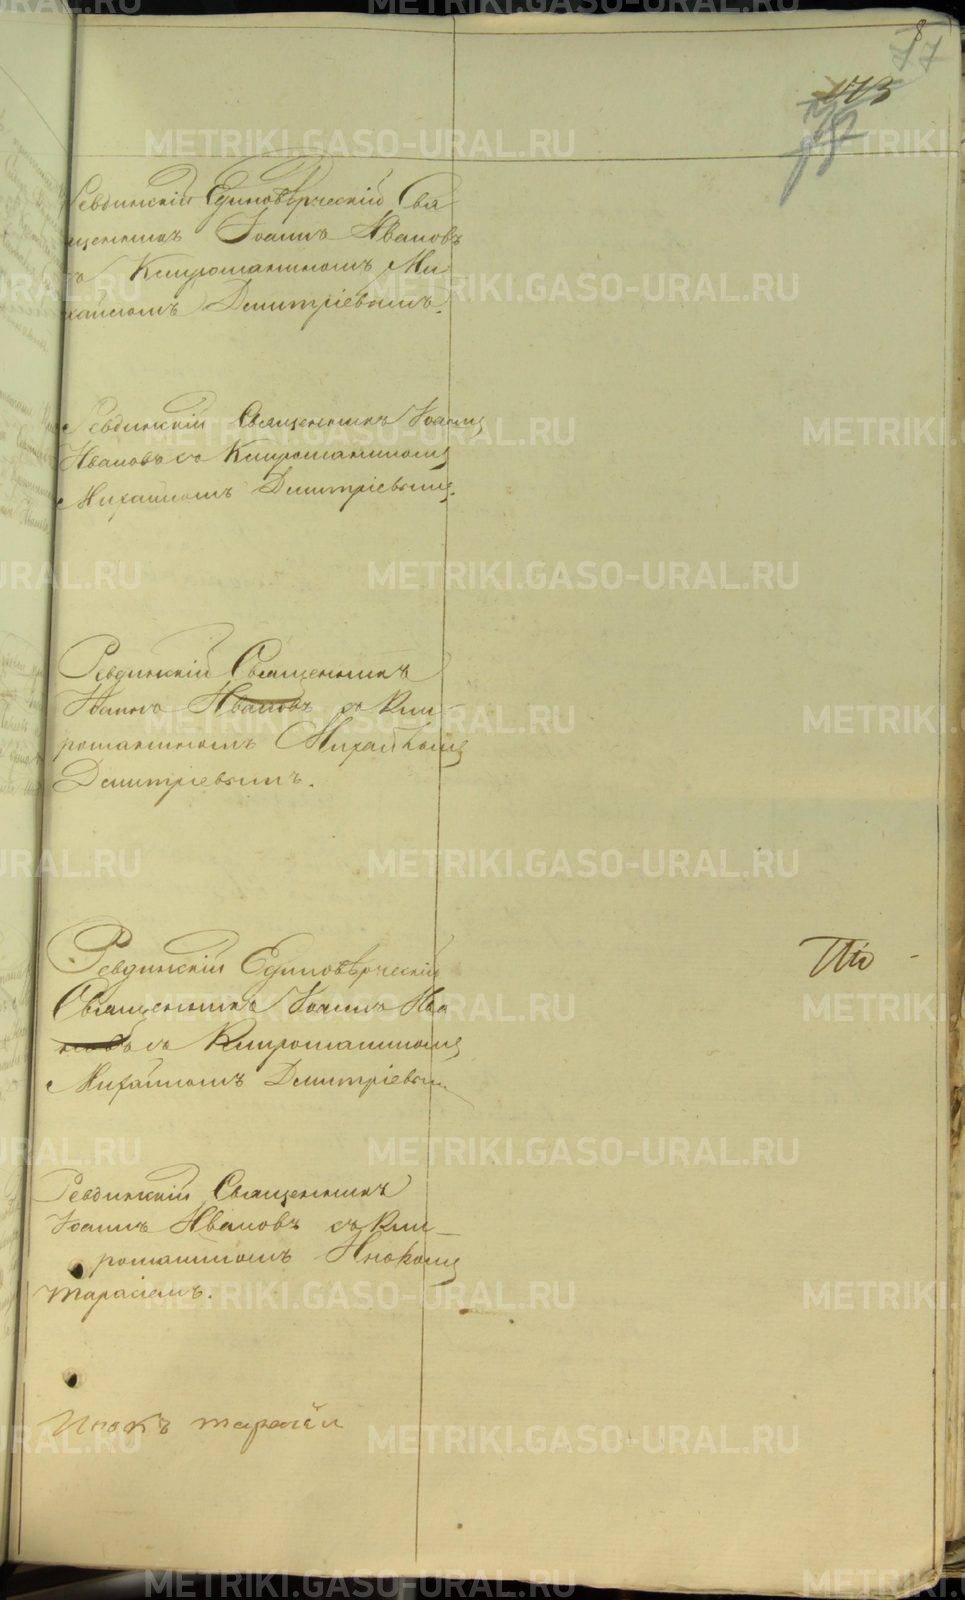 8
77
173
Ревдинскій Единовѣрческій Свя
щенникъ Іоаннъ Ивановъ
съ Клирошаниномъ Ми
хаиломъ Димитріевымъ.
Ревдинскій Священникъ Іоаннъ
Ивановъ со Клирошаниномъ
Михаиломъ Димитріевымъ.
Ревдинскій Священникъ
Іоаннъ Ивановъ со Кли-
рошаниномъ Михаиломъ
Димитріевымъ.
Ревдинскій Единовѣрческій
Священникъ Іоаннъ Ива
новъ со Клирошаниномъ
Михаиломъ Димитріевым
Ревдинскій Священникъ
Іоаннъ Ивановъ съ Кли-
рошаниномъ Инокомъ
Тарасіемъ.
Инокъ тарасеи
METRIKI.GASO-URAL.RU